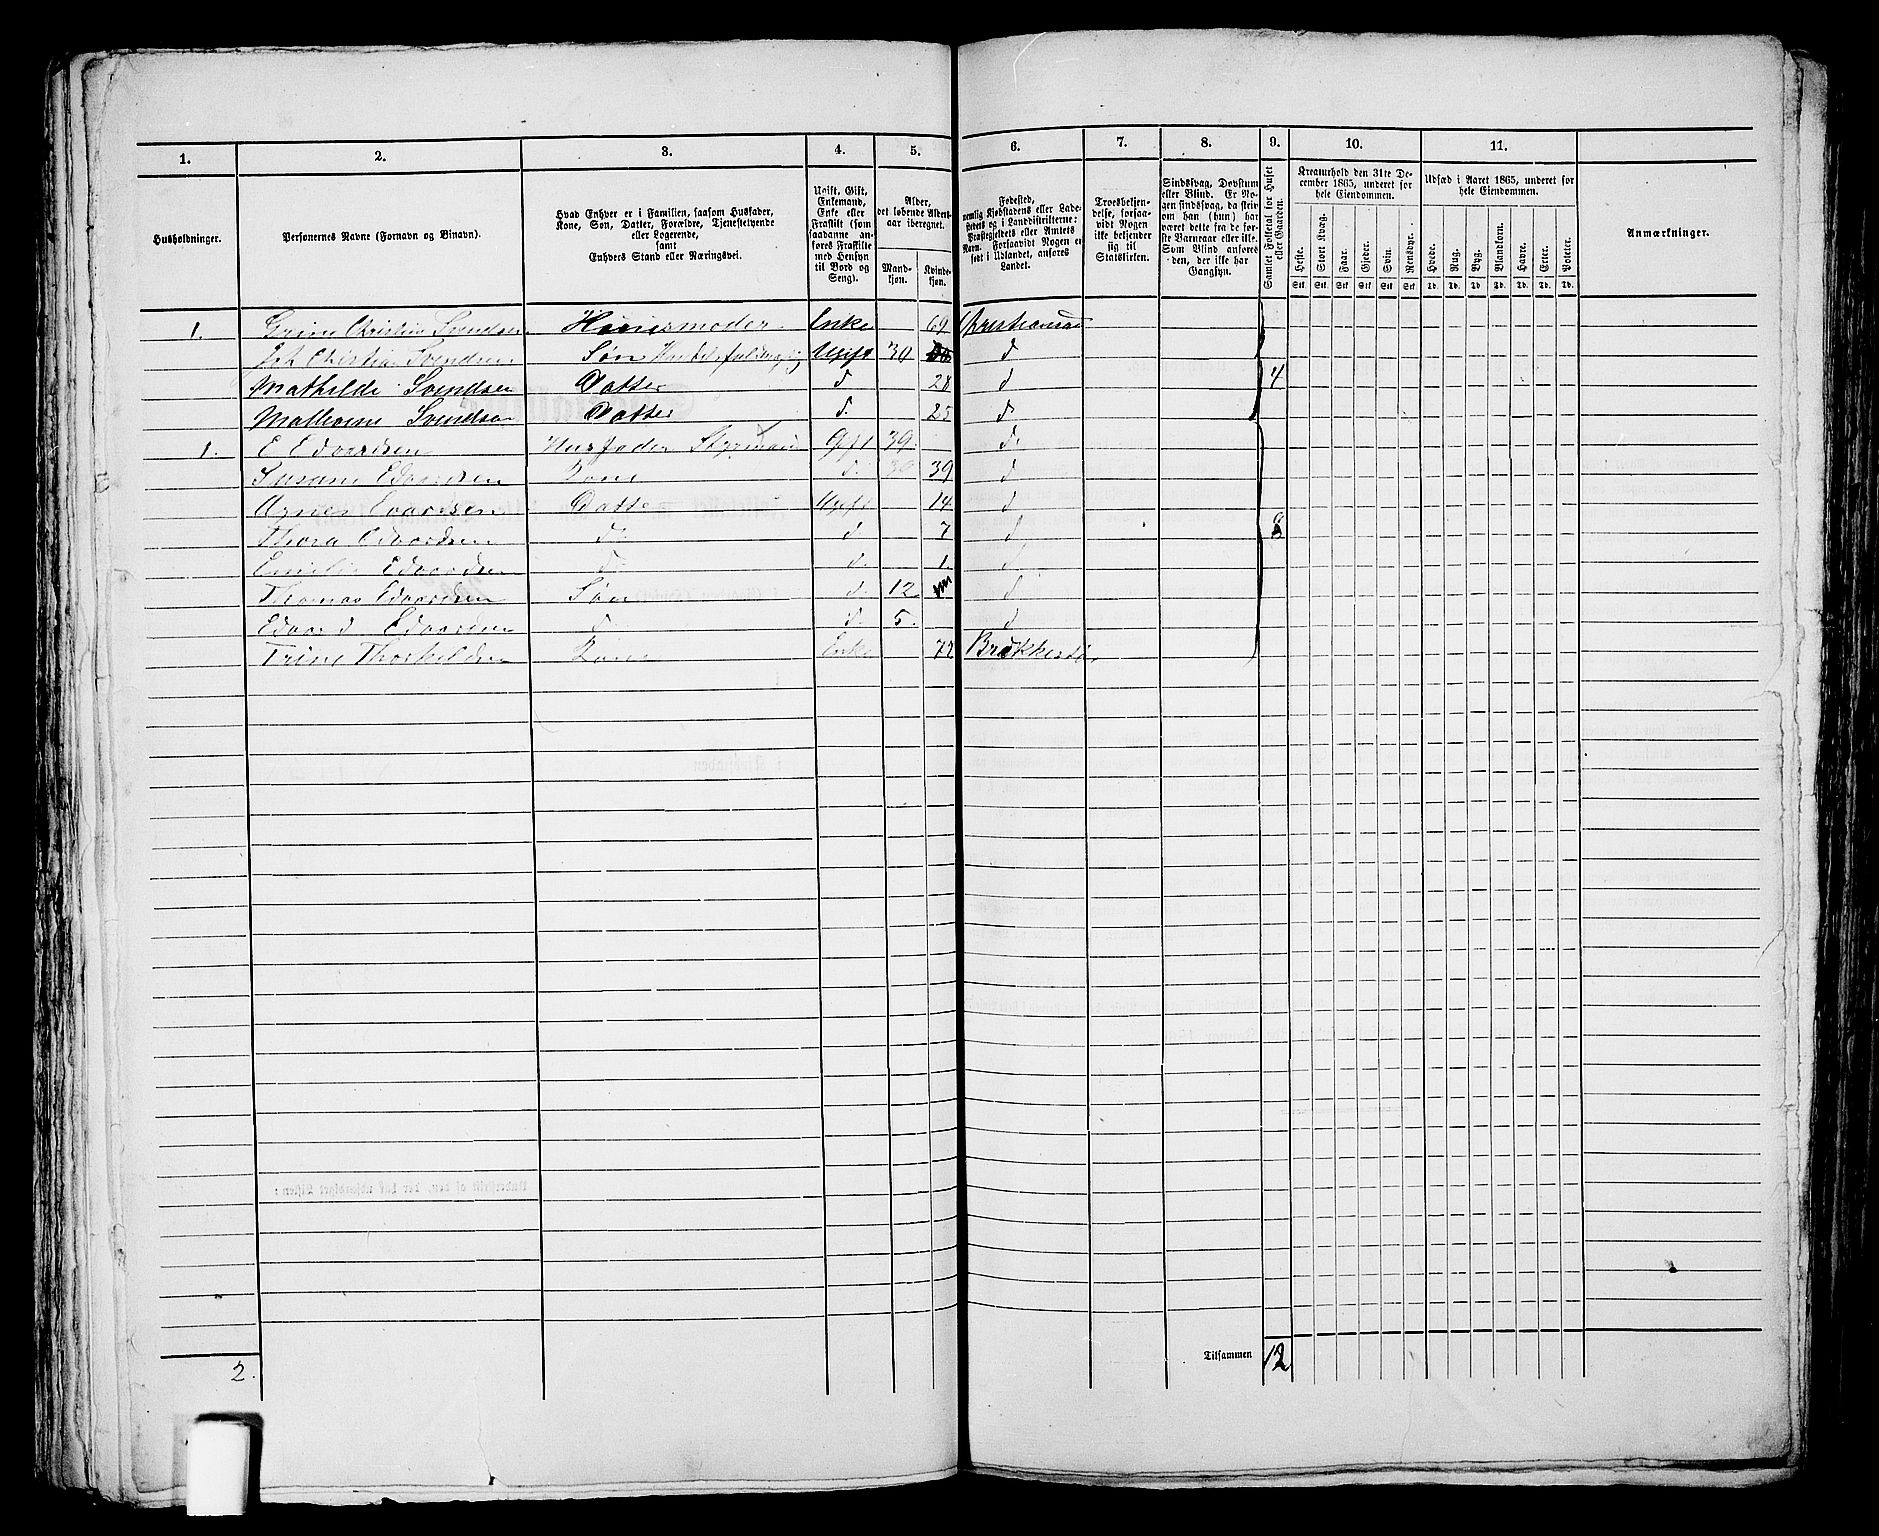 1. 2. 3. 4. 5. 6. 7. 8. 9. 10. 11.
Husholdninger.
Personernes Navne (Fornavn og Binavn).
Hvad Enhver er i Familien, saasom Husfader,
Kone, Søn, Datter, Forældre, Tjenestetyende
eller Logerende,
samt
Enhvers Stand eller Næringsvei.
Ugift, Gift,
Enkemand,
Enke eller
Fraskilt (som
saadanne an-
føres Fraskilte
med Hensyn
til Bord og
Seng).
Alder,
det løbende Alders-
aar iberegnet.
Mand-
kjøn.
Kvinde-
kjøn.
Fødested,
nemlig Kjøbstadens eller Lade-
stedets og i Landdistrikterne:
Præstegjeldets eller Amtets
Navn. Forsaavidt Nogen er
født i Udlandet, anføres
Landet.
Troesbekjen-
delse, forsaa-
vidt Nogen
ikke bekjender
sig til
Statskirken.
Sindssvag, Døvstum
eller Blind. Er No-
gen sindssvag, da skriv
om han (hun) har
været dette fra de før-
ste Barneaar eller ikke.
Som Blind anføres
den, der ikke har
Gangsyn.
Samlet Folketal for Huset
eller Gaarden.
Kreaturhold den 31te De-
cember 1865, underet for
hele Eiendommen.
Heste. Stort Kvæg. Faar. Gjeder. Svin. Rensdyr.
Stk Stk Stk Stk Stk Stk
Udsæd i Aaret 1865, underet for
hele Eiendommen.
Hvede. Rug. Byg. Blandkorn. Havre. Erter. Poteter.
Td. Td. Td. Td. Td. Td. Td.
Anmærkninger.
1. Christin Svendsen Huusmoder Enke 69 Christiansand
Christian Svendsen Søn Ugift 30 d
Mathilde Svendsen Datter d 28 d 4
Svendsen Datter d. 25 d
1. E Edvardsen Husfader Styrmand Gift 39. d.
Susane Edvardsen Kone d. 39 d
Edvardsen Datter Ugift 14 d
Thora Edvardsen d. d 7 d 8
Emelie Edvardsen d d. 1. d.
Thomas Edvardsen Søn d. 12 d
Edvard Edvardsen d. d. 5. d
Trine Thorkildsen Kone Enke 72
2.
Tilsammen 12